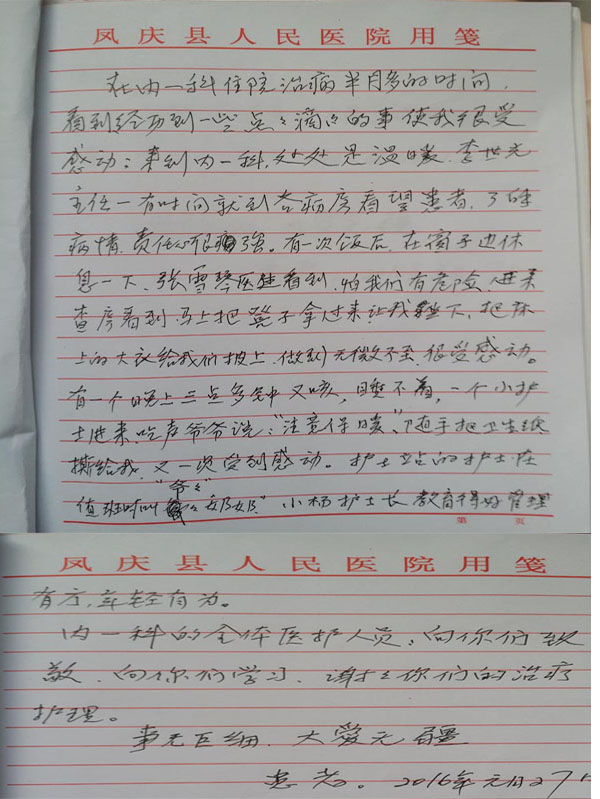 凤庆县人民医院用笺
在内一科住院治病半月多的时间,
看到经历到一些点々滴々的事使我很受
感动:来到内一科,处处是温暖,李世光
主任一有时间就到各病房看望患者,了解
病情,责任心很强。有一次饭后,在窗子边休
息一下,张雪琴医生看到,怕我们有危险,进来
查房看到,马上把凳子拿过来让我坐下,把床
上的大衣给我们披上,做到无微不至,很受感动。
有一个晚上三点多钟又咳,睡不着,一个小护
士进来吃声爷爷说:“注意保暖”,随手把卫生纸
撕给我,又一次受到感动。护士站的护士在
值班时叫“爷々”“奶奶”小杨护士长教育得好管理
第 页
凤庆县人民医院用笺
有方,年轻有为。
内一科的全体医护人员:向你们致
敬,向你们学习,谢々你们的治疗
护理。
事无巨细,大爱无疆
患者。2016年元月27